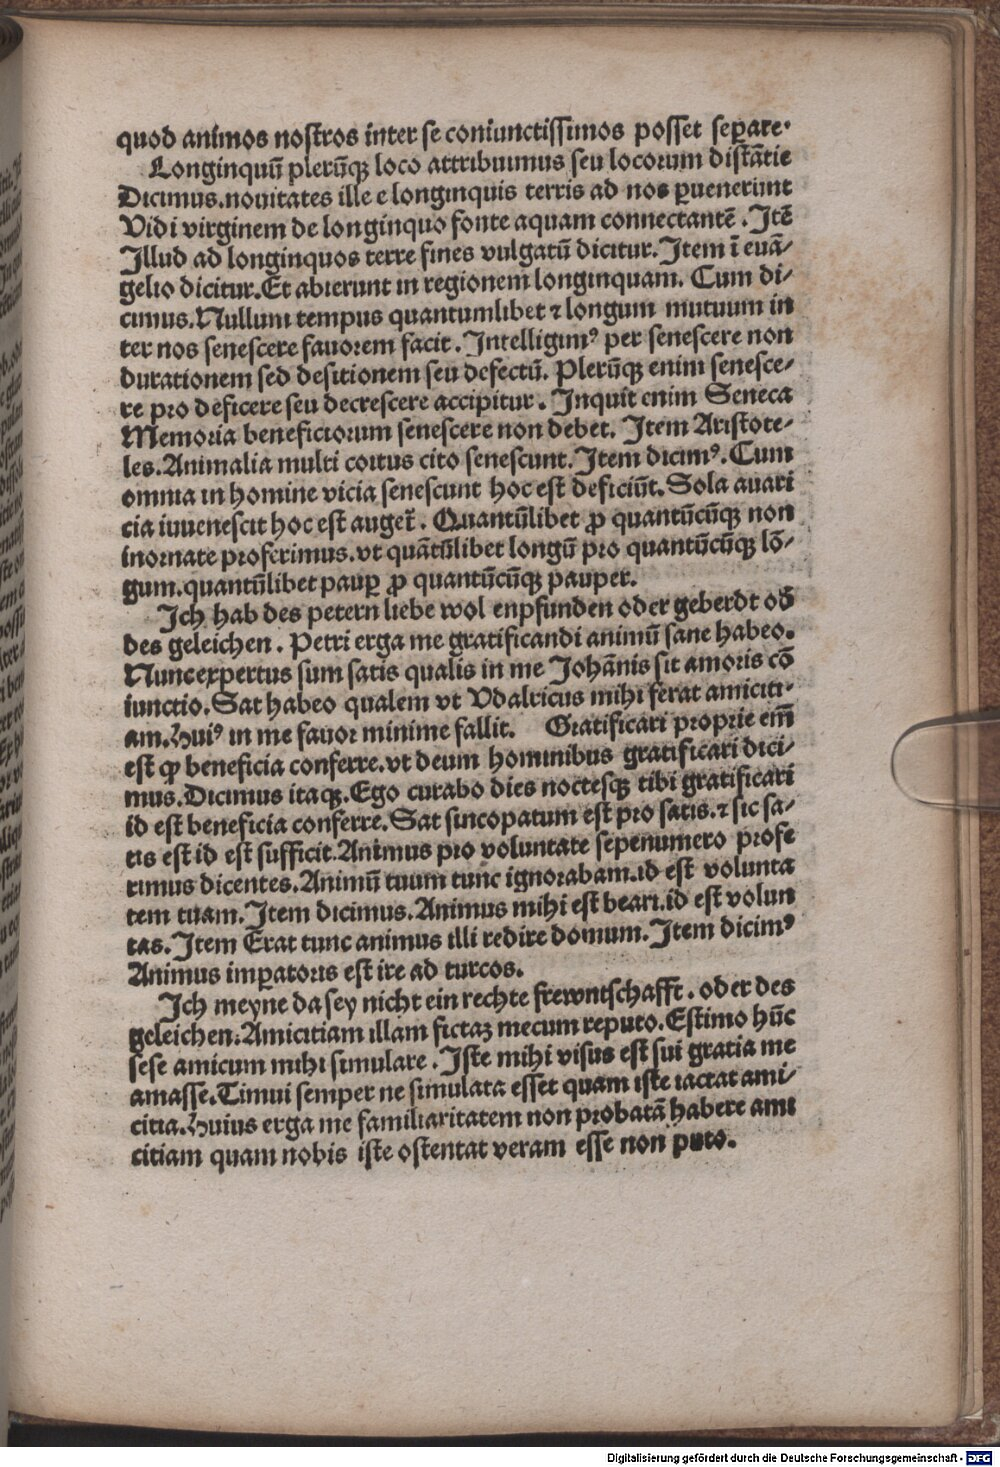 quod animos nostros inter se coniunctissimos posset seꝑare·
Longinquū plerūꝙ loco attribuimus seu locorum distātie
Dicimus.nouitates ille e longinquis terris ad nos ꝑuenerunt
Vidi virginem de longinquo fonte aquam connectantē. Itē
Illud ad longinquos terre fines vulgatū dicitur. Item ī euā-
gelio dicitur. Et abierunt in regionem longinquam. Cum di-
cimus. Nullum tempus quantumlibet ⁊ longum mutuum in
ter nos senescere fauorem facit. Intelligimꝰ per senescere non
durationem sed desitionem seu defectū. Plerūꝙ enim senesce-
re pro deficere seu decrescere accipitur. Inquit enim Seneca
Memoria beneficiorum senescere non debet. Item Aristote-
les. Animalia multi coitus cito senescunt. Item dicimꝰ. Cum
omnia in homine vicia senescunt hoc est deficiūt. Sola auari
cia iuuenescit hoc est auger̄. Quantūlibet ꝓ quantūcūꝙ non
inornate proferimus. vt quātūlibet longū pro quantūcūꝙ lō-
gum. quantūlibet pauꝑ ꝓ quantūcūꝙ pauper.
Ich hab des petern liebe wol enpfunden oder geberdt od̄
des geleichen. Petri erga me gratificandi animū sane habeo.
Nunc expertus sum satis qualis in me Johānis sit amoris cō
iunctio. Sat habeo qualem vt Vdalricus mihi ferat amiciti-
am. Huiꝰ in me fauor minime fallit. Gratificari proprie em̄
est ꝙ beneficia conferre. vt deum hominibus gratificari dici-
mus. Dicimus itaꝙ. Ego curabo dies noctesꝙ tibi gratificari
id est beneficia conferre. Sat sincopatum est pro satis. ⁊ sic sa-
tis est id est sufficit. Animus pro voluntate sepenumero profe
rimus dicentes. Animū tuum tunc ignorabam. id est volunta
tem tuam. Item dicimus. Animus mihi est beari. id est volun
tas. Item Erat tunc animus illi redire domum. Item dicimꝰ
Animus imꝑatoris est ire ad turcos.
Ich meyne da sey nicht ein rechte frewntschafft. oder des
geleichen. Amicitiam illam fictaꝫ mecum reputo. Estimo hūc
sese amicum mihi simulare. Iste mihi visus est sui gratia me
amasse. Timui semper ne simulata esset quam iste iactat ami-
citia. Huius erga me familiaritatem non probatā habere ami
citiam quam nobis iste ostentat veram esse non puto.
Digitalisierung gefördert durch die Deutsche Forschungsgemeinschaft - DFG